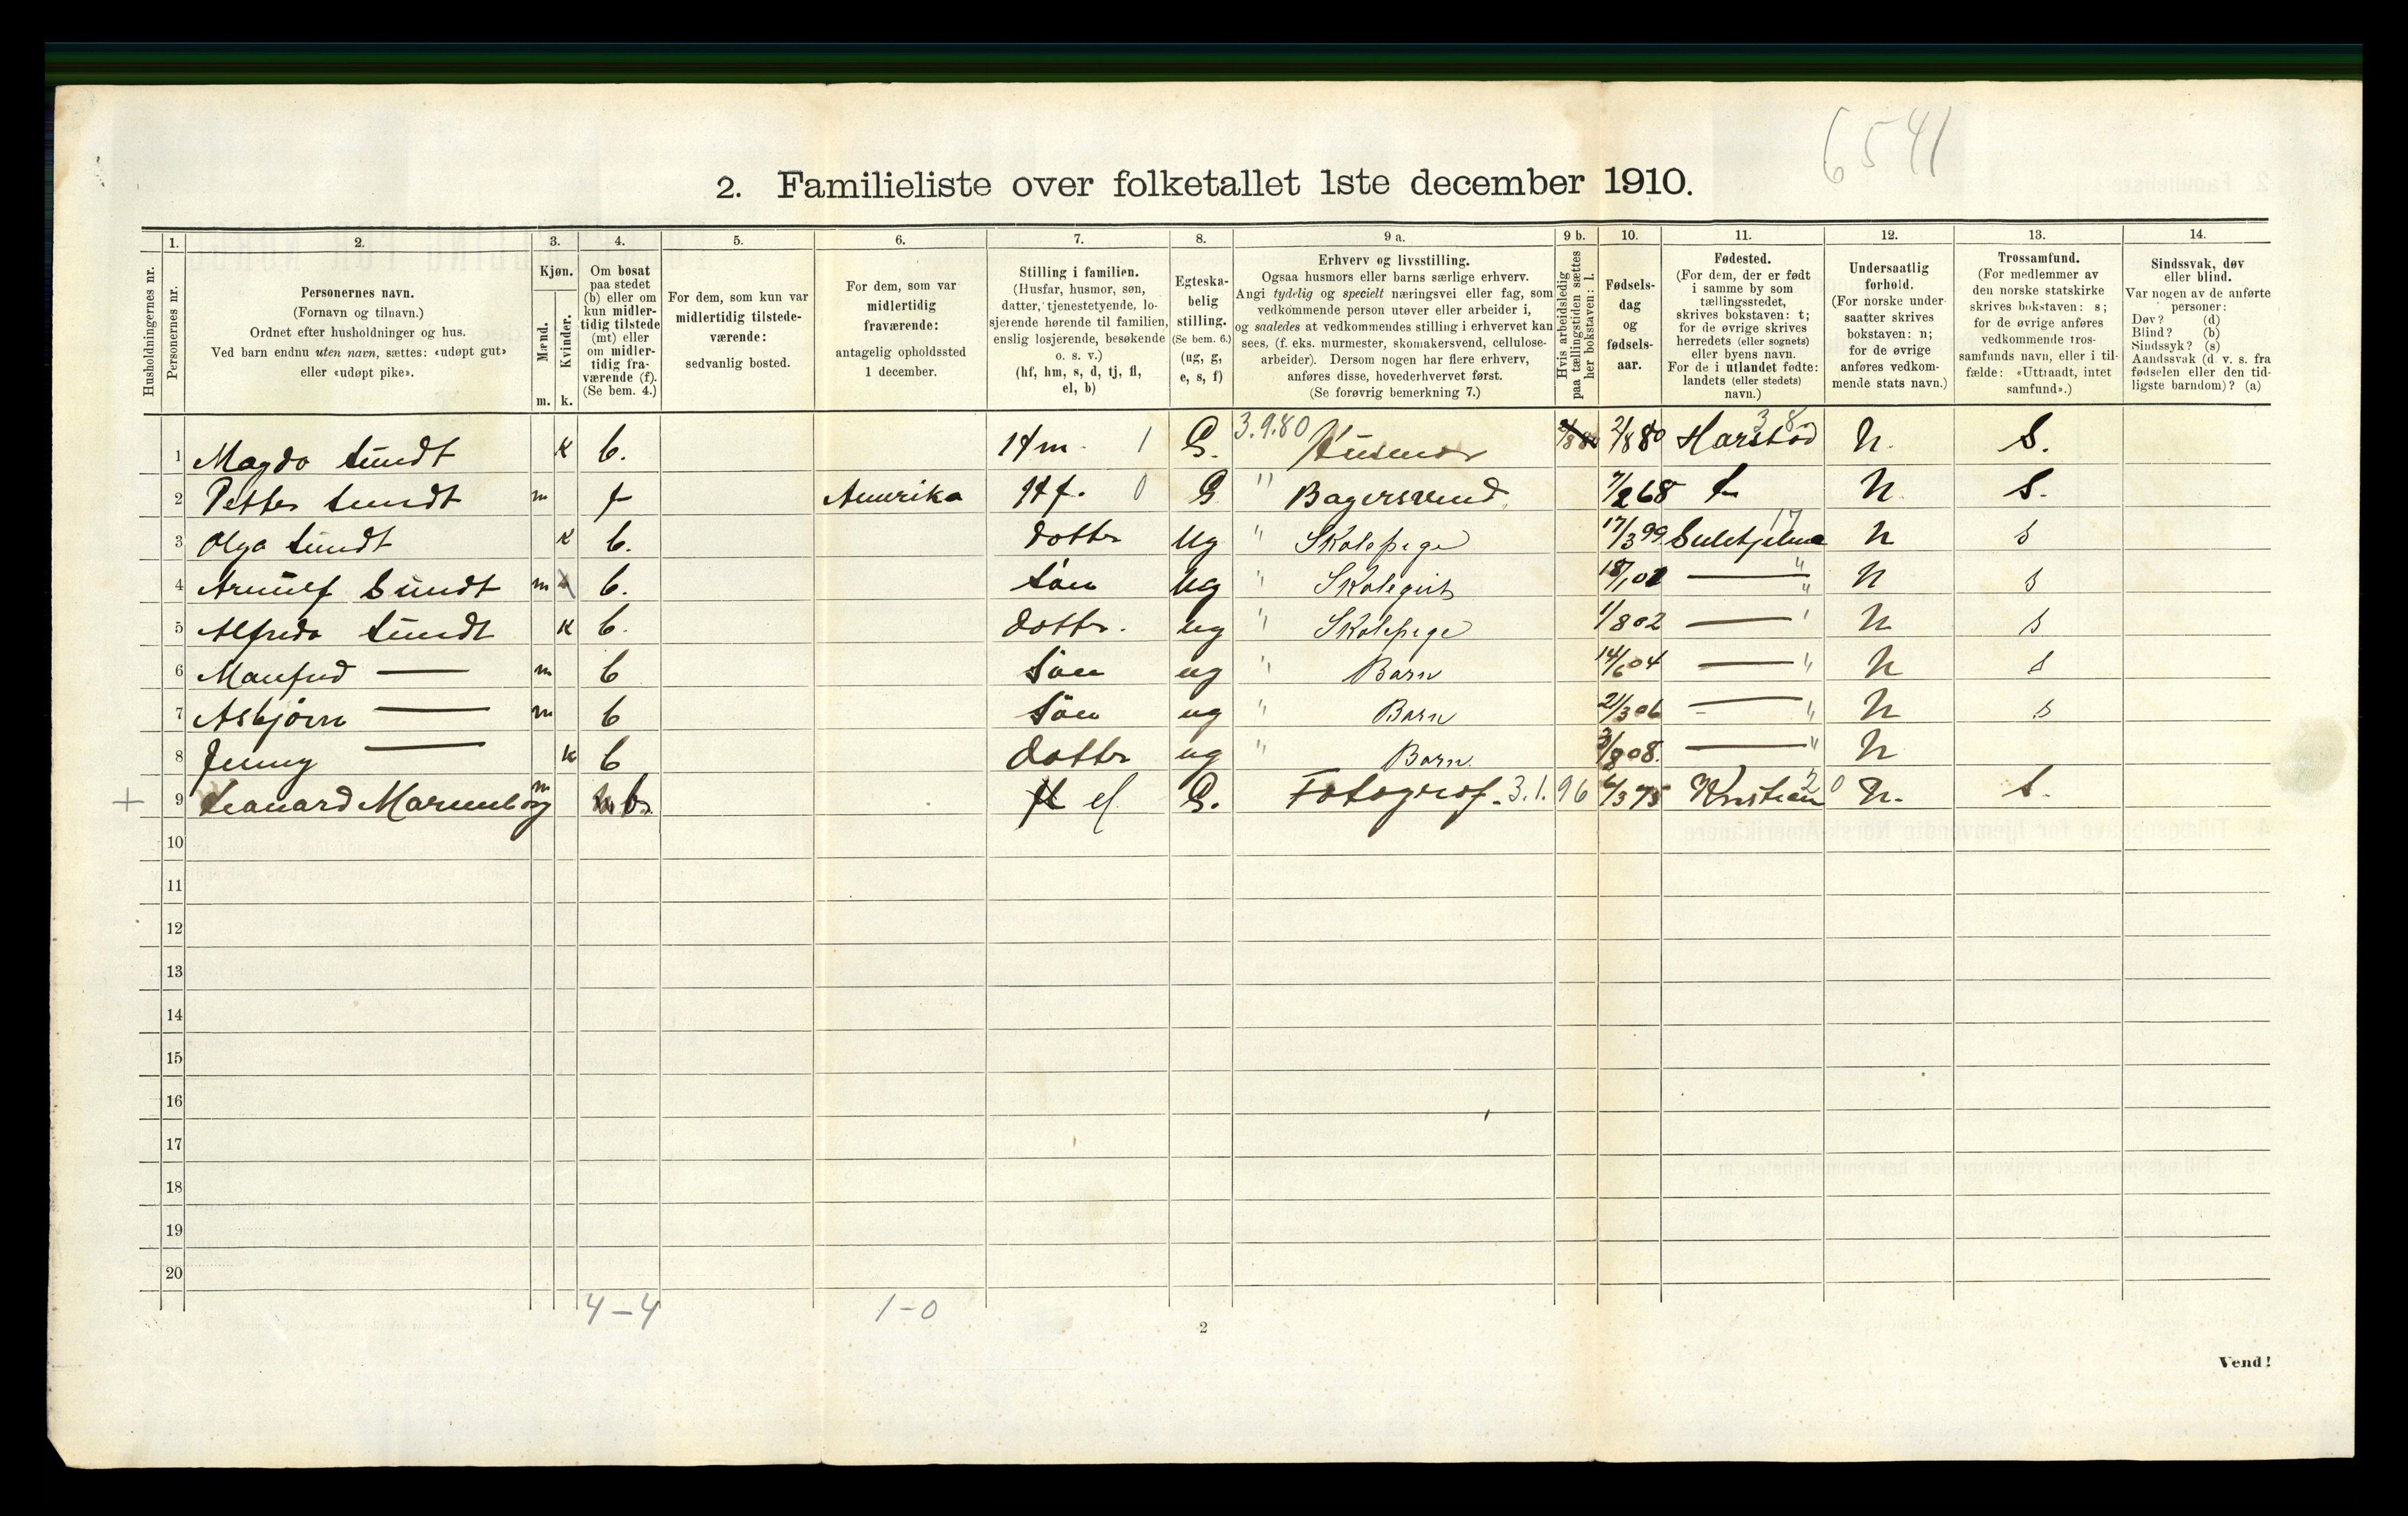 6541
2. Familieliste over folketallet 1ste december 1910.
Husholdningernes nr.
1. Personernes nr.
2. Personernes navn. (Fornavn og tilnavn.) Ordnet efter husholdninger og hus. Ved barn endnu uten navn, sættes: «udøpt gut» eller «udøpt pike».
3. Kjøn. Mænd. m. Kvinder. k.
4. Om bosat paa stedet (b) eller om kun midlertidig tilstede (mt) eller om midlertidig fraværende (f). (Se bem. 4.)
5. For dem, som kun var midlertidig tilstedeværende: sedvanlig bosted.
6. For dem, som var midlertidig fraværende: antagelig opholdssted 1 december.
7. Stilling i familien. (Husfar, husmor, søn, datter, tjenestetyende, losjerende hørende til familien, enslig losjerende, besøkende o. s. v.) (hf, hm, s, d, tj, fl, el, b)
8. Egteskabelig stilling. (Se bem. 6.) (ug, g, e, s, f)
9 a. Erhverv og livsstilling. Ogsaa husmors eller barns særlige erhverv. Angi tydelig og specielt næringsvei eller fag, som vedkommende person utøver eller arbeider i, og saaledes at vedkommendes stilling i erhvervet kan sees, (f. eks. murmester, skomakersvend, cellulosearbeider). Dersom nogen har flere erhverv, anføres disse, hovederhvervet først. (Se forøvrig bemerkning 7.)
9 b. Hvis arbeidsledig paa tællingstiden sættes her bokstaven: l.
10. Fødselsdag og fødselsaar.
11. Fødested. (For dem, der er født i samme by som tællingsstedet, skrives bokstaven: t; for de øvrige skrives herredets (eller sognets) eller byens navn. For de i utlandet fødte: landets (eller stedets) navn.)
12. Undersaatlig forhold. (For norske undersaatter skrives bokstaven: n; for de øvrige anføres vedkommende stats navn.)
13. Trossamfund. (For medlemmer av den norske statskirke skrives bokstaven: s; for de øvrige anføres vedkommende trossamfunds navn, eller i tilfælde: «Uttraadt, intet samfund».)
14. Sindssvak, døv eller blind. Var nogen av de anførte personer: Døv? (d) Blind? (b) Sindssyk? (s) Aandssvak (d. v. s. fra fødselen eller den tidligste barndom)? (a)
1 Magda Sundt k b. Hm. 1 G. 3.9.80 Husmor 2/8 80 Harstad 38 N. S.
2 Petter Sundt m f Amerika Hf. 0 G " Bagersvend 7/2 68 N S.
3 Olga Sundt k b. dotter Ug " Skolepige 17/3 99 Sulitjelma 17 N S
4 Arnulf Sundt m b. Søn Ug " Skolegut — " N S
5 Alfrida Sundt k b. dotter. ug " Skolepige 1/8 02 — N S
6 Manfred — m b Søn ug " Barn 14/6 04 — " N S
7 Asbjørn — m b Søn ug " Barn 21/3 06 — " N S
8 Jenny — k b dotter ug " Barn 3/8 08. — " N
+ 9 Leonard m b. el G. Fotograf. 3.1.96 6/3 75 Kristian 20 N. S.
10
11
12
13
14
15
16
17
18
19
20
4-4 1-0
2
Vend!